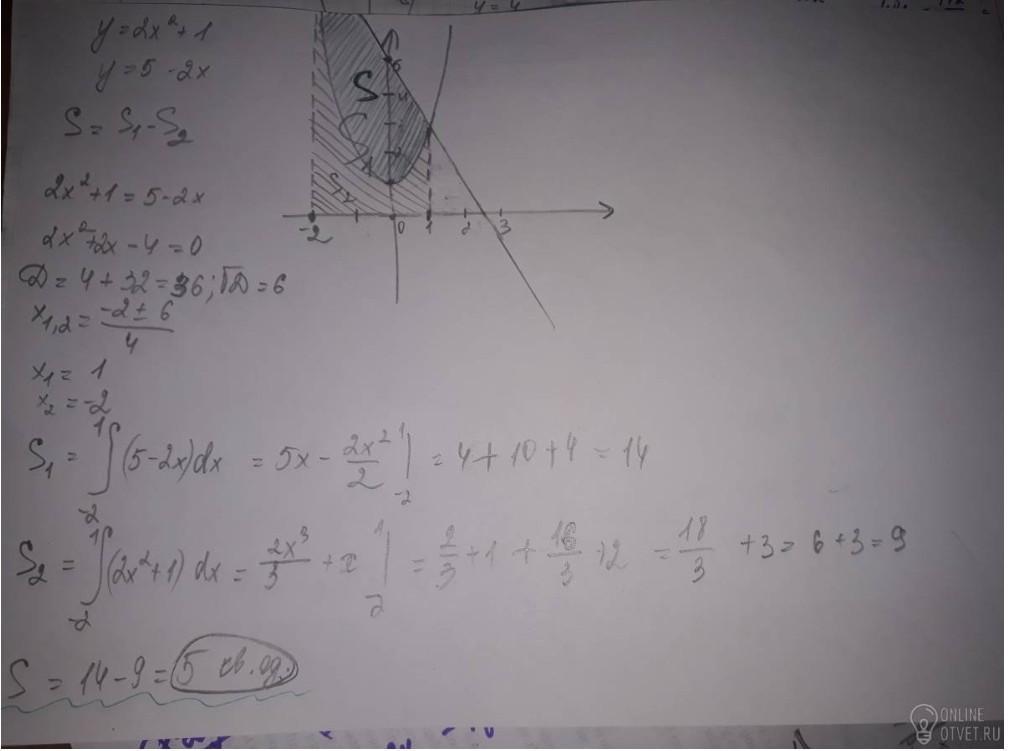 y = 4
y = 2x² + 1
y = 5 - 2x
S = S₁ - S₂
2x² + 1 = 5 - 2x
2x² + 2x - 4 = 0
D = 4 + 32 = 36; √D = 6
x₁,₂ = (-2 ± 6)/4
x₁ = 1
x₂ = -2
S
6
4
S₂
-2 0 1 2 3
S₁ = ∫₋₂¹ (5 - 2x)dx = 5x - 2x²/2 |₋₂¹ = 4 + 10 + 4 = 14
S₂ = ∫₋₂¹ (2x² + 1) dx = 2x³/3 + x |₋₂¹ = 2/3 + 1 + 16/3 + 2 = 18/3 + 3 = 6 + 3 = 9
S = 14 - 9 = 5 кв.од.
ONLINE
OTVET.RU